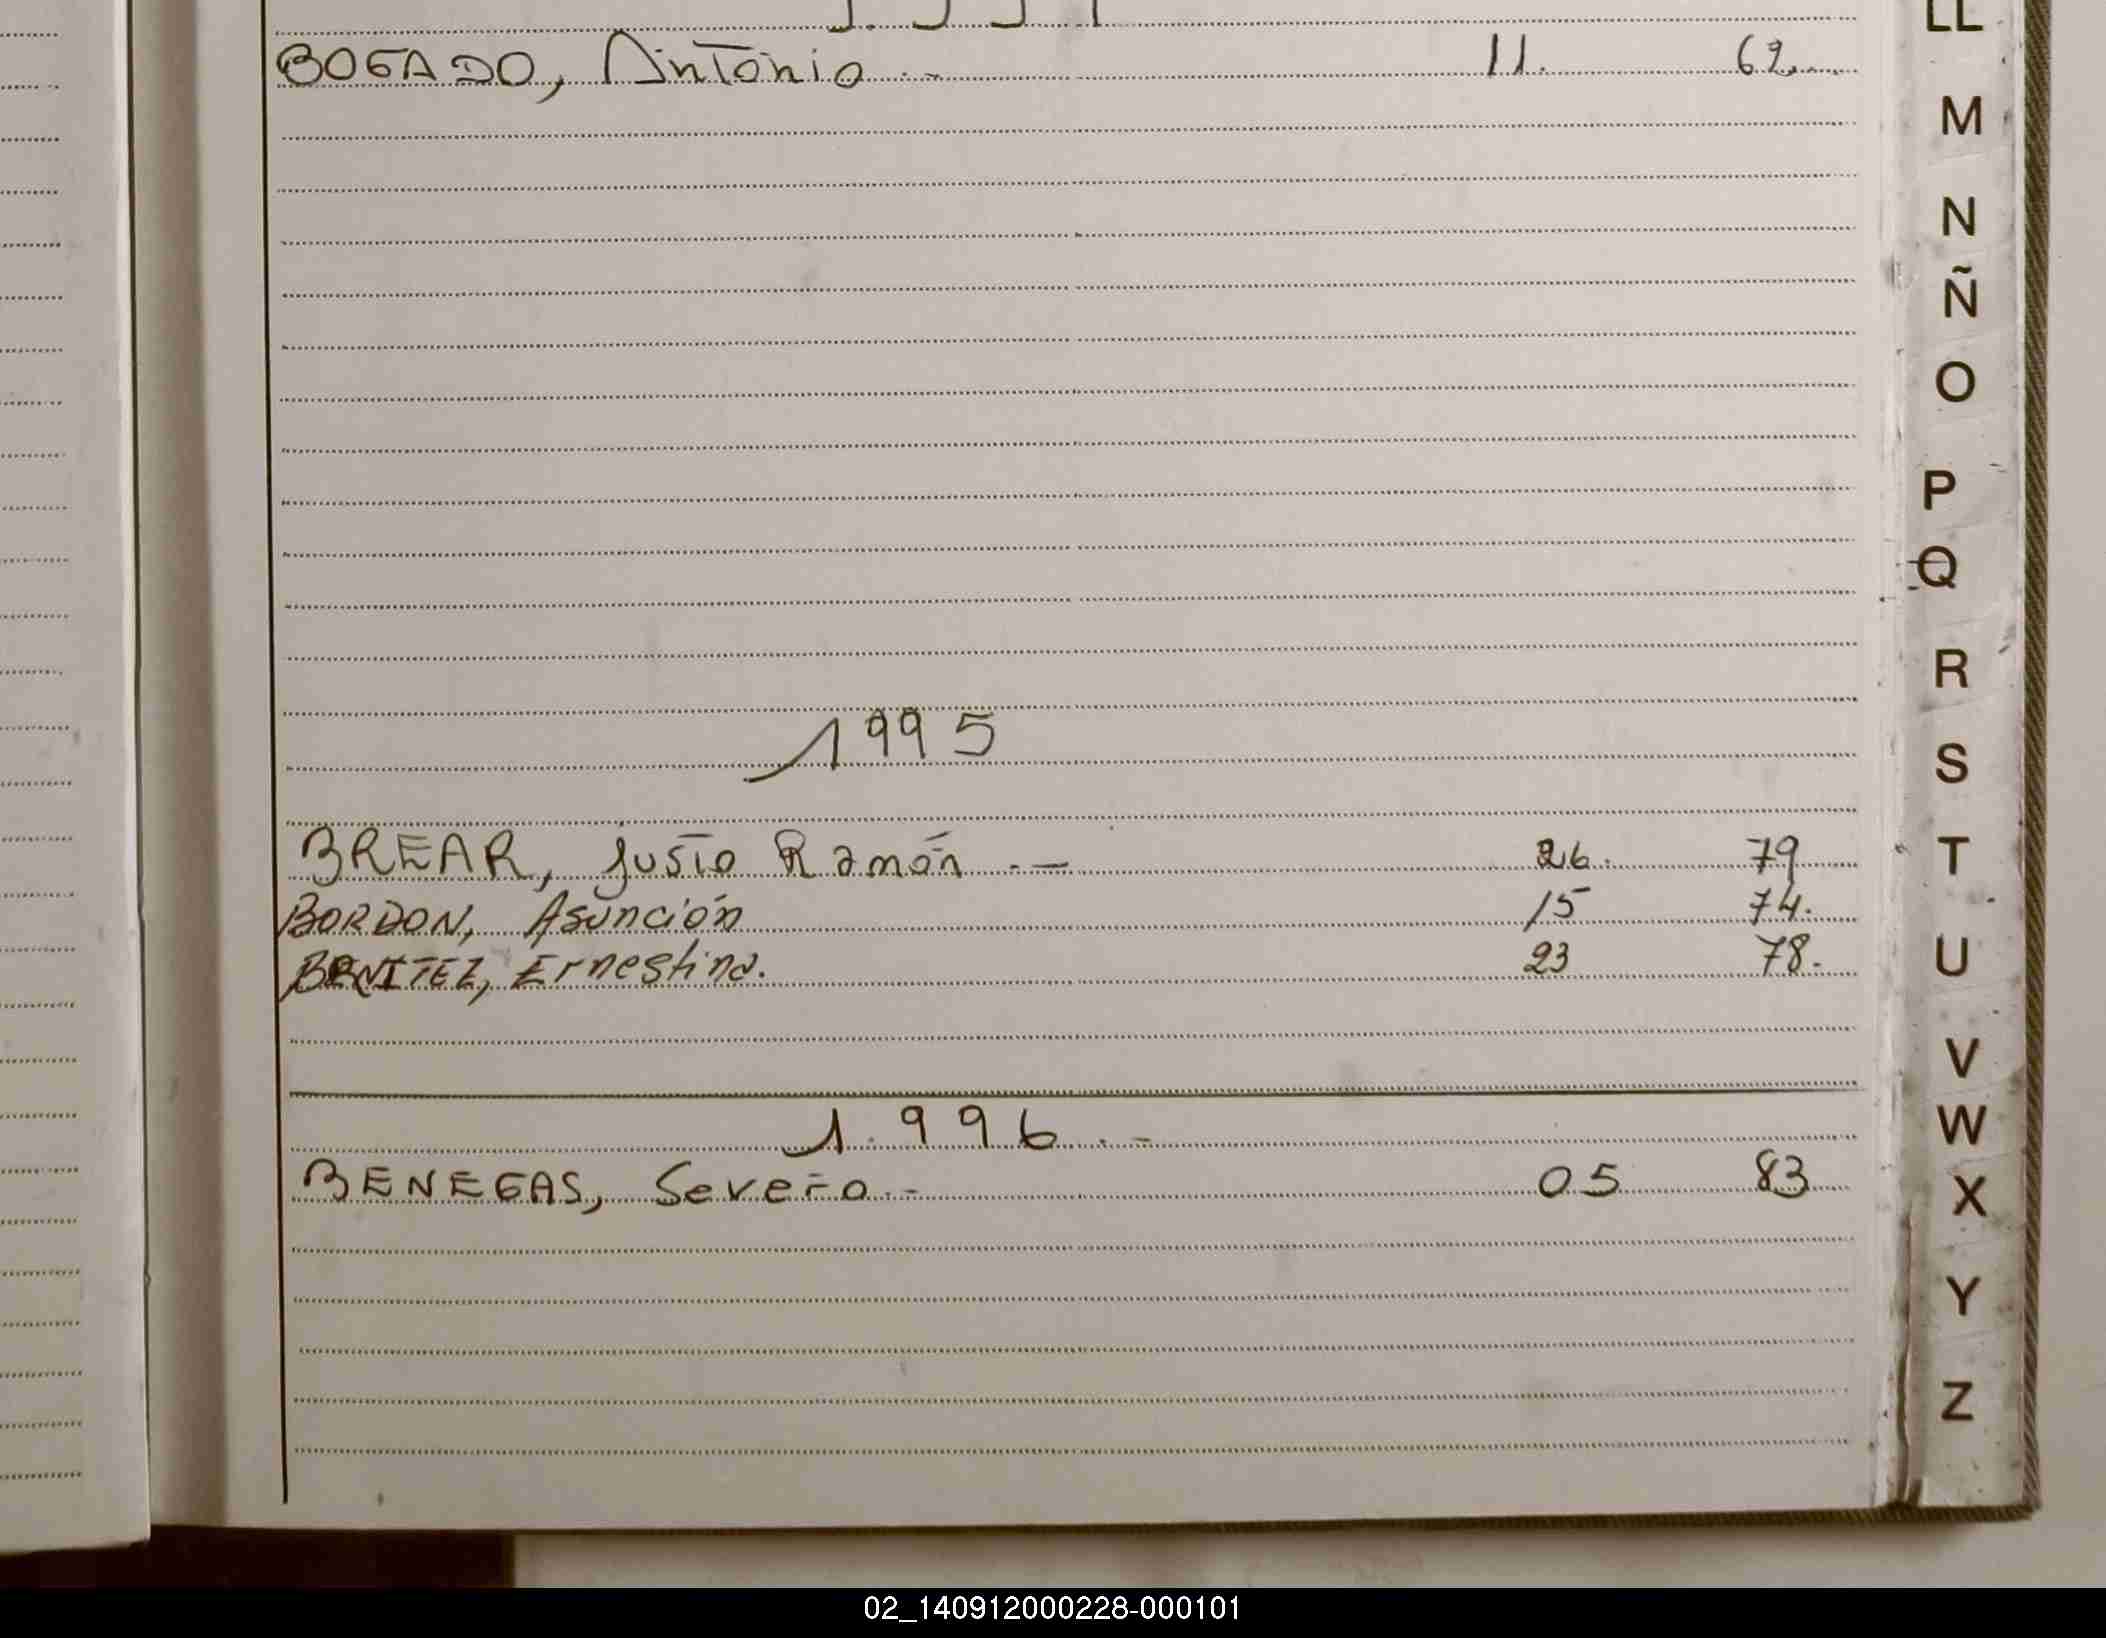 BOGADO, Antonio.- 11. 62.
1995
BREAR, Justo Ramón.- 26. 79
BORDON, Asunción 15 74.
BENITEZ, Ernestina. 23 78.
1.996.-
BENEGAS, Severo.- 05 83
LL
M
N
Ñ
O
P
Q
R
S
T
U
V
W
X
Y
Z
02_140912000228-000101